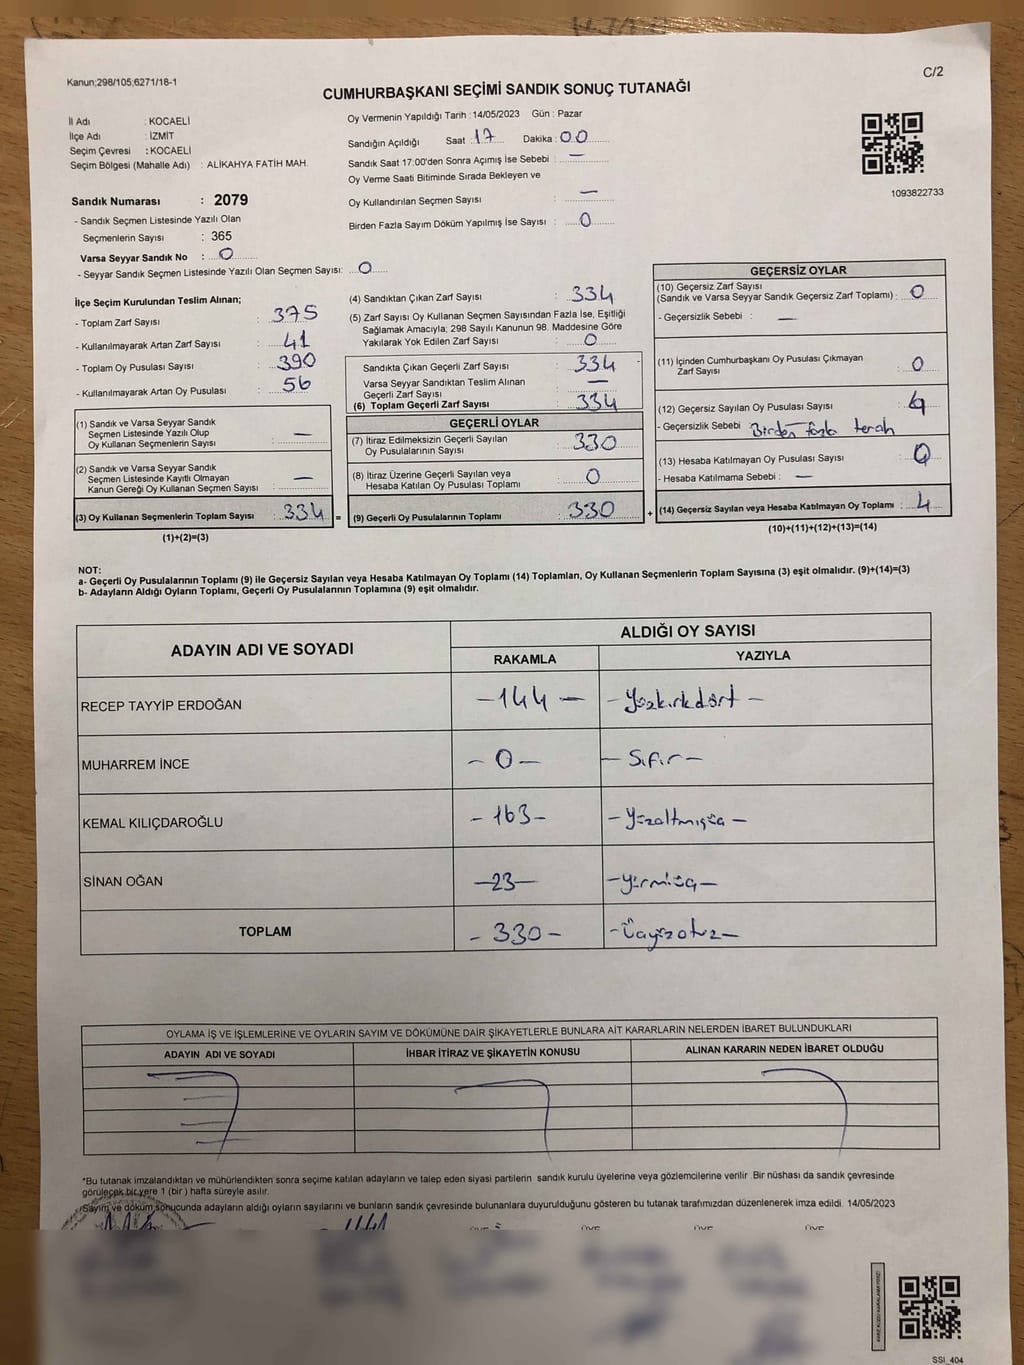 Kanun;298/105;6271/16-1
C/2
CUMHURBAŞKANI SEÇİMİ SANDIK SONUÇ TUTANAĞI
İl Adı : KOCAELİ
İlçe Adı : İZMİT
Seçim Çevresi : KOCAELİ
Seçim Bölgesi (Mahalle Adı) : ALİKAHYA FATİH MAH.
Sandık Numarası : 2079
- Sandık Seçmen Listesinde Yazılı Olan
Seçmenlerin Sayısı : 365
Varsa Seyyar Sandık No : 0
- Seyyar Sandık Seçmen Listesinde Yazılı Olan Seçmen Sayısı: 0
Oy Vermenin Yapıldığı Tarih : 14/05/2023 Gün : Pazar
Sandığın Açıldığı Saat : 17 Dakika : 00
Sandık Saat 17:00'den Sonra Açımış İse Sebebi : —
Oy Verme Saati Bitiminde Sırada Bekleyen ve
Oy Kullandırılan Seçmen Sayısı : —
Birden Fazla Sayım Döküm Yapılmış İse Sayısı : 0
1093822733
İlçe Seçim Kurulundan Teslim Alınan;
- Toplam Zarf Sayısı : 375
- Kullanılmayarak Artan Zarf Sayısı : 41
- Toplam Oy Pusulası Sayısı : 390
- Kullanılmayarak Artan Oy Pusulası : 56
(1) Sandık ve Varsa Seyyar Sandık
Seçmen Listesinde Yazılı Olup
Oy Kullanan Seçmenlerin Sayısı : —
(2) Sandık ve Varsa Seyyar Sandık
Seçmen Listesinde Kayıtlı Olmayan
Kanun Gereği Oy Kullanan Seçmen Sayısı : —
(3) Oy Kullanan Seçmenlerin Toplam Sayısı : 334
(1)+(2)=(3)
(4) Sandıktan Çıkan Zarf Sayısı : 334
(5) Zarf Sayısı Oy Kullanan Seçmen Sayısından Fazla İse, Eşitliği
Sağlamak Amacıyla; 298 Sayılı Kanunun 98. Maddesine Göre
Yakılarak Yok Edilen Zarf Sayısı : 0
Sandıkta Çıkan Geçerli Zarf Sayısı : 334
Varsa Seyyar Sandıktan Teslim Alınan
Geçerli Zarf Sayısı : —
(6) Toplam Geçerli Zarf Sayısı : 334
GEÇERLİ OYLAR
(7) İtiraz Edilmeksizin Geçerli Sayılan
Oy Pusulalarının Sayısı : 330
(8) İtiraz Üzerine Geçerli Sayılan veya
Hesaba Katılan Oy Pusulası Toplamı : 0
= (9) Geçerli Oy Pusulalarının Toplamı : 330
GEÇERSİZ OYLAR
(10) Geçersiz Zarf Sayısı
(Sandık ve Varsa Seyyar Sandık Geçersiz Zarf Toplamı) : 0
- Geçersizlik Sebebi : —
(11) İçinden Cumhurbaşkanı Oy Pusulası Çıkmayan
Zarf Sayısı : 0
(12) Geçersiz Sayılan Oy Pusulası Sayısı : 4
- Geçersizlik Sebebi Birden fazla tercih
(13) Hesaba Katılmayan Oy Pusulası Sayısı : 0
- Hesaba Katılmama Sebebi : —
+ (14) Geçersiz Sayılan veya Hesaba Katılmayan Oy Toplamı : 4
(10)+(11)+(12)+(13)=(14)
NOT:
a- Geçerli Oy Pusulalarının Toplamı (9) ile Geçersiz Sayılan veya Hesaba Katılmayan Oy Toplamı (14) Toplamları, Oy Kullanan Seçmenlerin Toplam Sayısına (3) eşit olmalıdır. (9)+(14)=(3)
b- Adayların Aldığı Oyların Toplamı, Geçerli Oy Pusulalarının Toplamına (9) eşit olmalıdır.
ADAYIN ADI VE SOYADI
ALDIĞI OY SAYISI
RAKAMLA YAZIYLA
RECEP TAYYİP ERDOĞAN -144- -Yüzkırkdört-
MUHARREM İNCE -0- -Sıfır-
KEMAL KILIÇDAROĞLU -163- -Yüzaltmışüç-
SİNAN OĞAN -23- -Yirmiüç-
TOPLAM -330- -Üçyüzotuz-
OYLAMA İŞ VE İŞLEMLERİNE VE OYLARIN SAYIM VE DÖKÜMÜNE DAİR ŞİKAYETLERLE BUNLARA AİT KARARLARIN NELERDEN İBARET BULUNDUKLARI
ADAYIN ADI VE SOYADI İHBAR İTİRAZ VE ŞİKAYETİN KONUSU ALINAN KARARIN NEDEN İBARET OLDUĞU
*Bu tutanak imzalandıktan ve mühürlendikten sonra seçime katılan adayların ve talep eden siyasi partilerin sandık kurulu üyelerine veya gözlemcilerine verilir. Bir nüshası da sandık çevresinde
görülecek bir yere 1 (bir) hafta süreyle asılır.
Sayım ve döküm sonucunda adayların aldığı oyların sayılarını ve bunların sandık çevresinde bulunanlara duyurulduğunu gösteren bu tutanak tarafımızdan düzenlenerek imza edildi. 14/05/2023
SSI_404